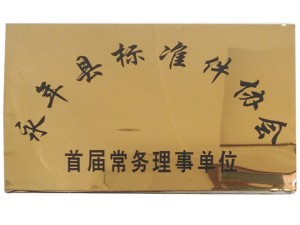 永年县标准件协会
首届常务理事单位